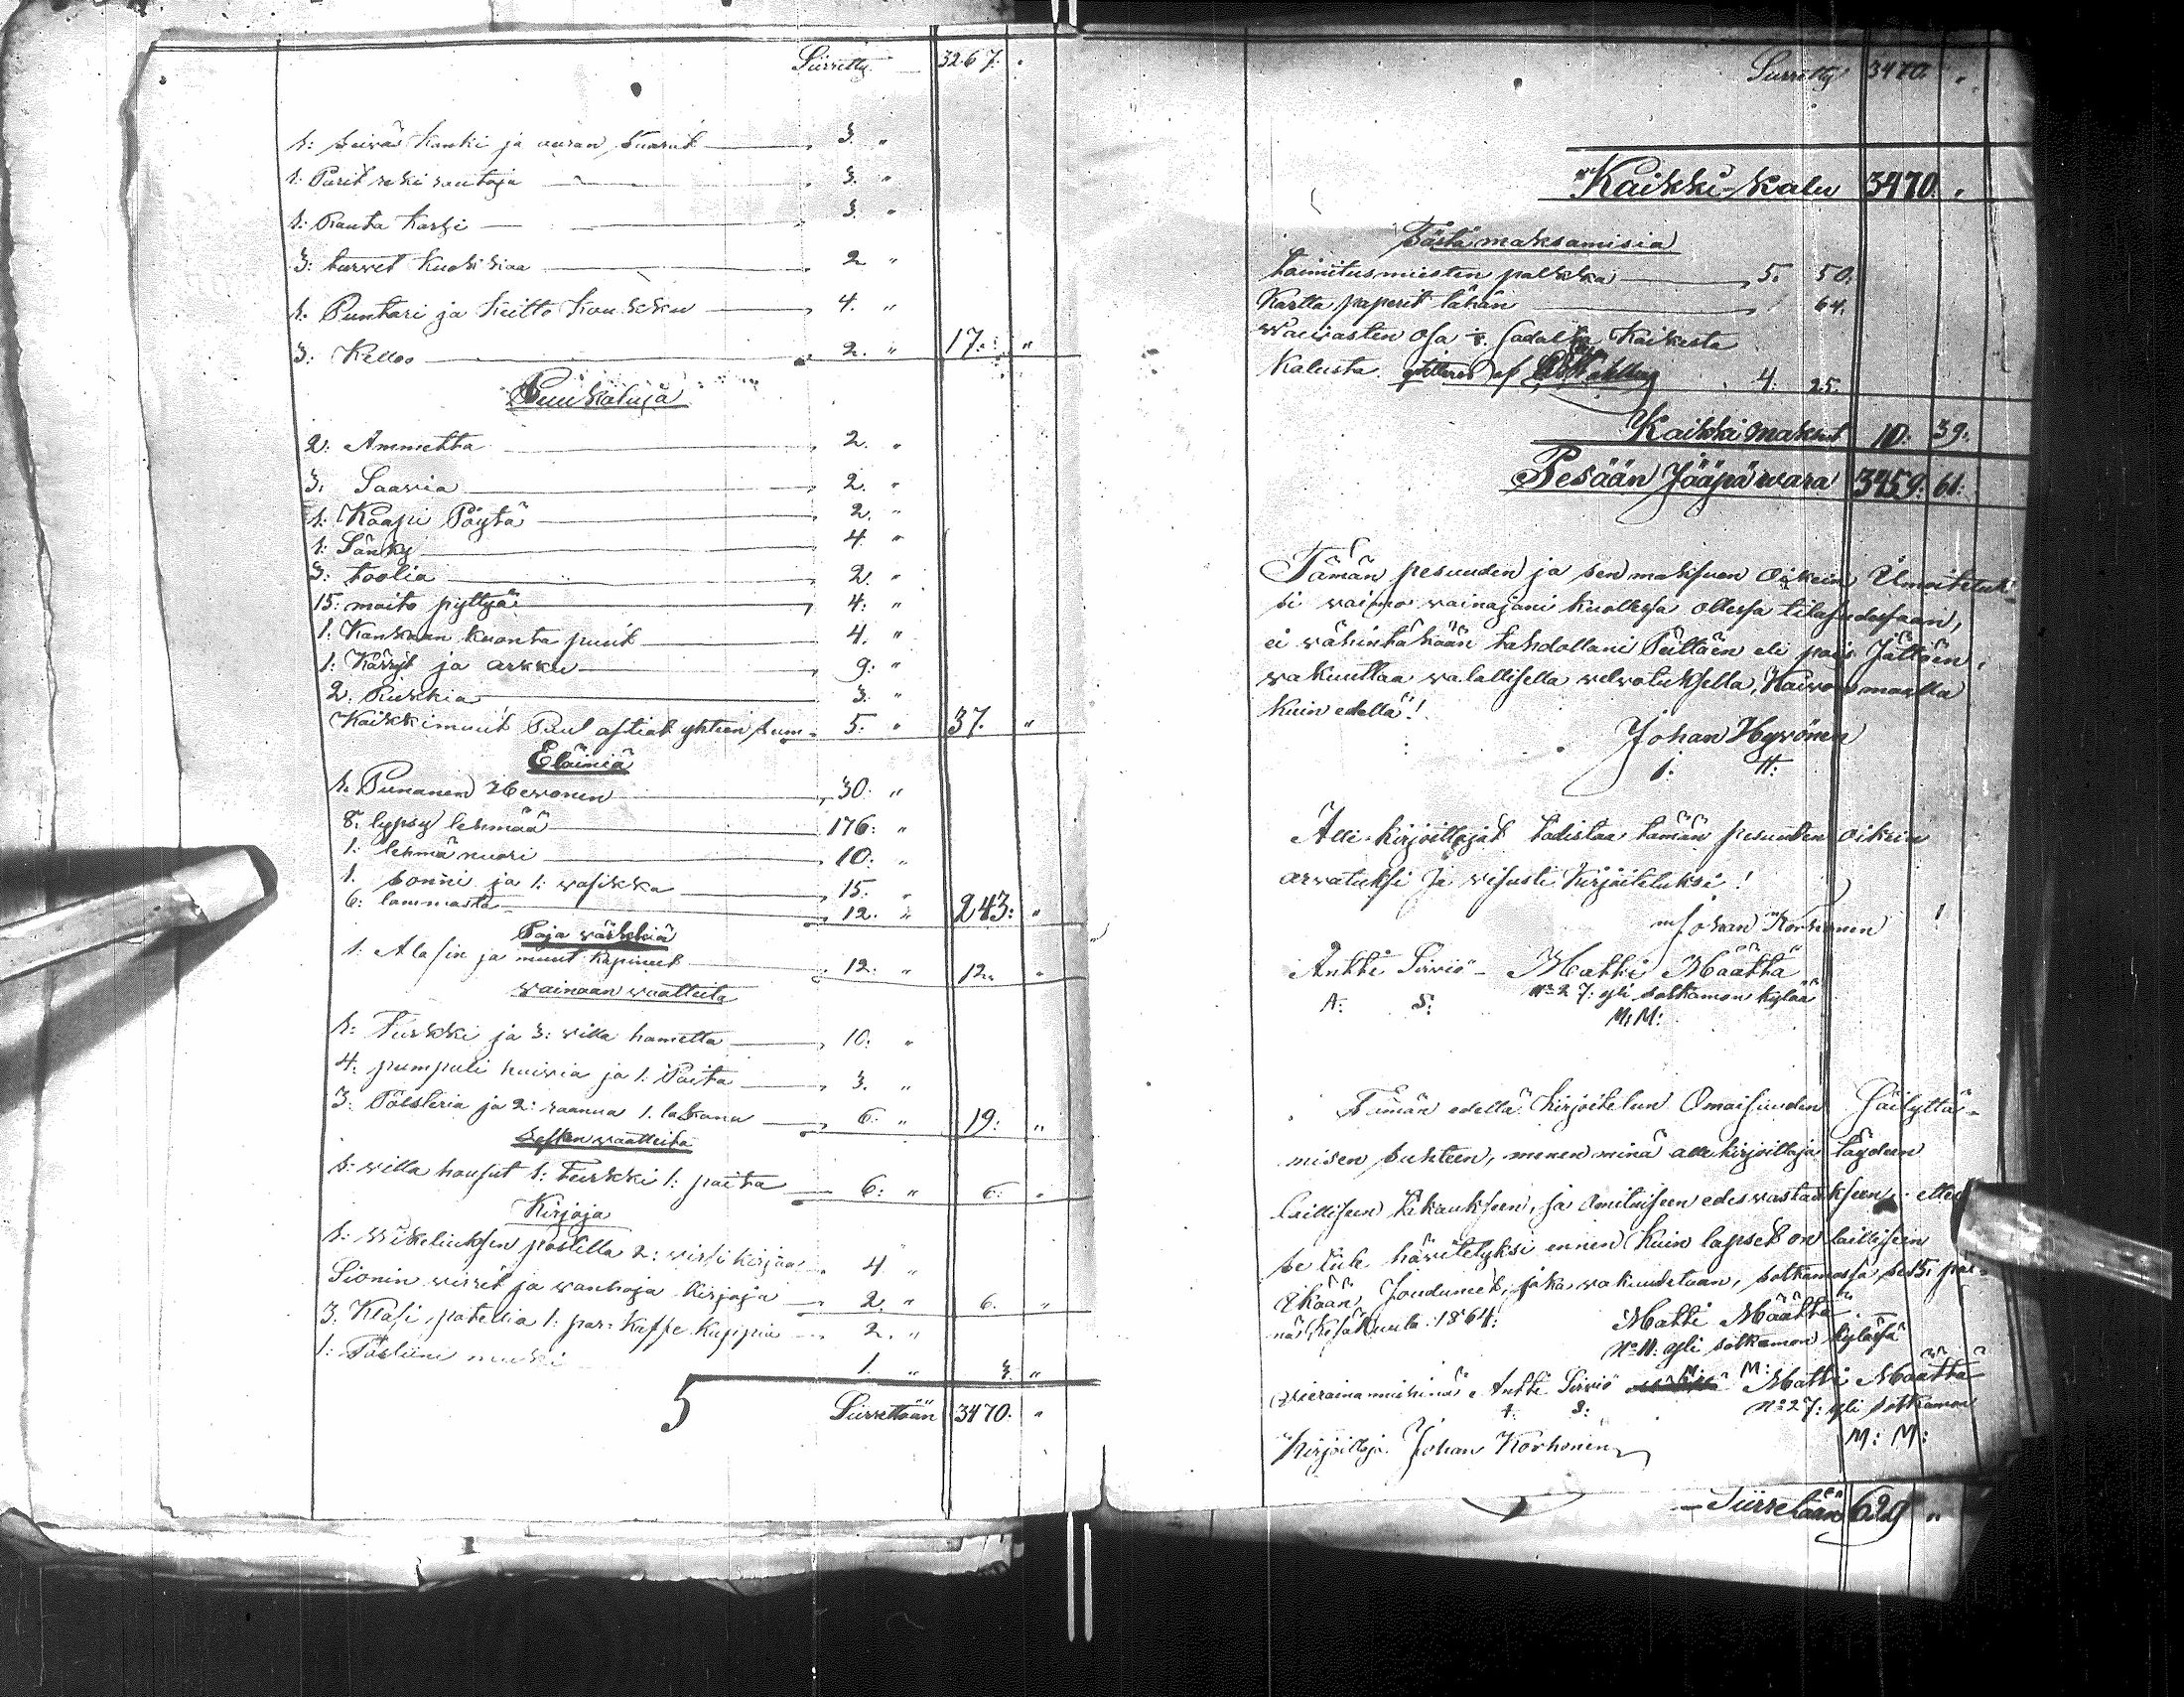 Siirretty 3267. "
1: seiväs Kanki ja auran Kuurut 3. "
1: Parit reki rautoja 3. "
1: Rauta Karhi 3. "
3: turvet kuokkaa 2 "
1: Puntari ja Keitto Koukku 4. "
3: Kelloo 2. " 17. "
Puukaluja
2: Ammetta 2. "
3: Saavia 2. "
1: Kaapi Pöytä 2. "
1: Sänky 4 "
3: toolia 2. "
15: maito pyttyä 4: "
1: Kankaan kuonta puut 4. "
1: Kärryt ja arkku 9: "
2. Ruskkia 3. "
Kaikkimuut Puu astiat yhteen sum- 5. " 37. "
Eläiniä
1. Punanen Hevonen 30. "
8. lypsy lehmää 176: "
1: lehmä nuori 10: "
1. sonni ja 1: vasikka 15. "
6: lammasta 12. " 243: "
Paja värkkiä
1: Alasin ja muut kapineet 12. " 12. "
vainaan vaatteita
1: Turkki ja 3: villa hametta 10: "
4: pumpuli huivia ja 1: Paita 3. "
3: Pölsteria ja 2: raanua 1. lakana 6: " 19: "
Lesken vaatteita
1: villa housut 1: Turkki 1: paita 6: " 6: "
Kirjoja
1: Wikeliuksen postilla 2: virsi kirjaa 4 "
Sionin virret ja vanhoja kirjoja 2. " 6. "
3. Klasi potellia 1: par: Kaffe Kuppia 2. "
1: Posliini muki 1. " 3. "
5 Siirretään 3470. "
Siirretty 3470 "
Kaikki-kalu 3470. "
Tästä maksamisia
toimitusmiesten palkka 5. 50.
Kartta paperit tähän 64.
Waivasten osa 1/8 sadalta Kaikesta
Kalusta qvitteras af 4. 25.
Kaikki maksut 10: 39:
Pesään Jääpä wara 3459: 61:
Tämän pesuuden ja sen maksuen Oikein Ilmoitetuk-
si vaimo vainajani kuollessa ollessa tilasudessaan,
ei vähintäkään tahdollani Peittäen eli pois Jättäen,
vakuuttaa valallisella velvotuksella, Kaivos maalla
kuin edellä!
Johan Hyvönen
J. H:
Alle kirjoittajat todistaa tämän pesuuden oikein
arvatuksi Ja visusti Kirjoitetuksi!
Johan Korhonen
Antti Sirviö - Matti Määttä
A: S: N:o 27: yli sotkamon kylää
M: M:
Tämän edellä kirjoitetun Omaisuuden Säilyttä-
misen suhteen, menen minä alle kirjoittaja täydeen
lailliseen takaukseen, ja omituiseen edesvastaukseen, ettei
se tule hävitetyksi ennen kuin lapset on laillisein
ikään Joudunet, joka vakuutetaan, sotkamossa se 15: päi-
nä Kesä Kuuta 1864: Matti Määttä
N:o 11: yli sotkamon kylässä
M: M:
Wieraina miehinä: Antti Sirviö Matti Määttä
A: S: N:o 27: yli sotkamon
Kirjoittaja Johan Korhonen M: M:
Siirretään 629 "